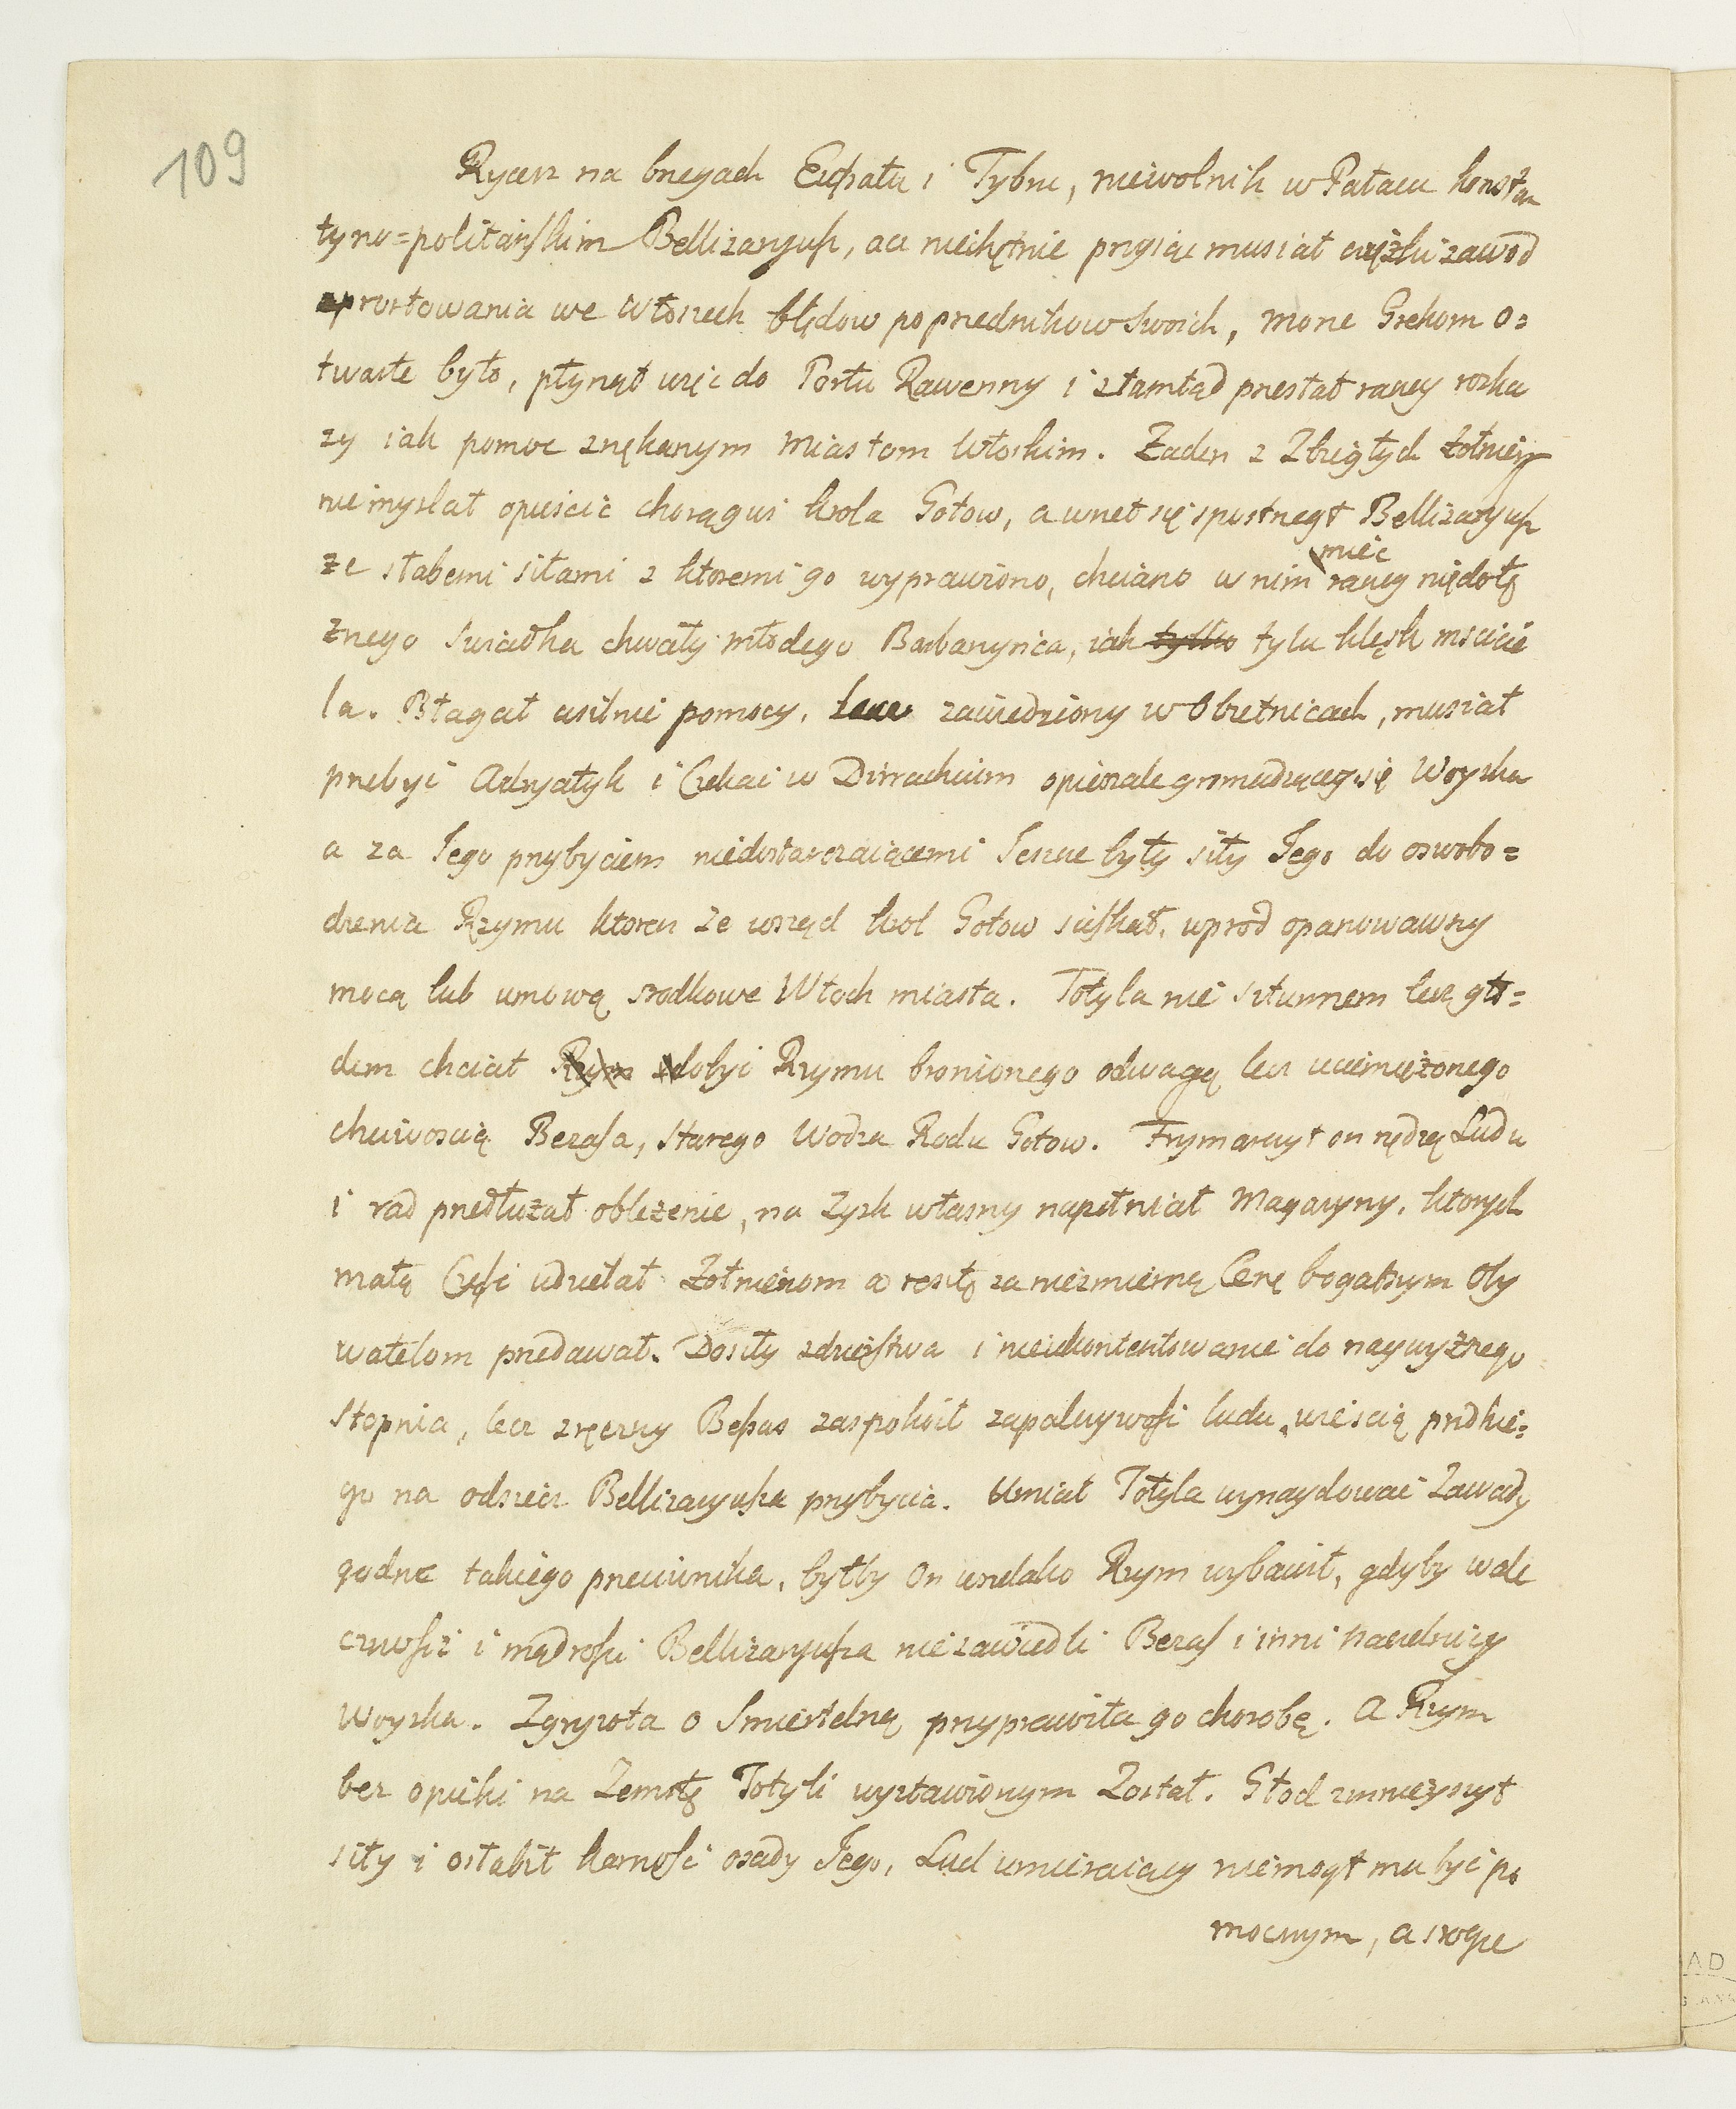 109
Rycerz na brzegach Eufratu i Tybru, niewolnik w Pałacu konstan
tyno=politańskim Bellizaryusz, acz niechętnie przyiąc musiał ciężki zawod
sprostowania we Włoszech błędow poprzednikow swoich, morze Grekom o=
twarte było, płynął więc do Portu Rawenny i ztamtąd przesłał raczey rozka
zy iak pomoc znękanym miastom Włoskim. Żaden z Zbiegłych żołnierzy
niemyslał opuścić chorągwi krola Gotow, a wnet się spostrzegł Bellizaryusz
ze słabemi siłami z ktoremi go wyprawiono, chciano w nim mieć raczey niędołę
żnego swiadka chwały młodego Barbarzyńca, iak tylko tylu klęsk mscicie
la. Błagał usilnie pomocy, lecz zawiedziony w Obietnicach, musiał
przebyć Adryatyk i Czekać w Dirrachium opieszale gromadzącego się Woyska
a za Jego przybyciem niedostarczaiącemi Jeszcze były siły Jego do oswobo=
dzenia Rzymu ktoren ze wsząd krol Gotow sciskał, wprod opanowawszy
mocą lub umową srodkowe Włoch miasta. Totyla nie szturmem lecz gło=
dem chciał Rzym zdobyć Rzymu bronionego odwagą lecz uciemiężonego
chciwoscią Bezasa, starego Wodza Rodu Gotow. Frymarczył on nędzą Ludu
i rad przedłużał oblężenie, na Zysk własny napełniał Magazyny, ktorych
małą Część udzielał Żołnierzom a resztę za niezmierną Cenę bogatszym Oby
watelom przedawał. Doszły zdzierstwa i nieukontentowanie do naywyższego
stopnia, lecz zręczny Beszas zaspokoił zapalczywość ludu, wieścią prędkie=
go na odsiecz Bellizaryusza przybycia. Umiał Totyla wynaydować Zawady
godne takiego przeciwnika, byłby On wszelako Rzym wybawił, gdyby wale
czności i mądrości Bellizaryusza nie zawiedli Bezas i inni naczelnicy
Woyska. Zgryzota o Smiertelną przyprawiła go chorobę. A Rzym
bez opieki na Zemstę Totyli wystawionym Został. Głod zmnieyszył
siły i osłabił karność osady Jego, Lud umieraiący niemogł mu być po
mocnym, a srogie